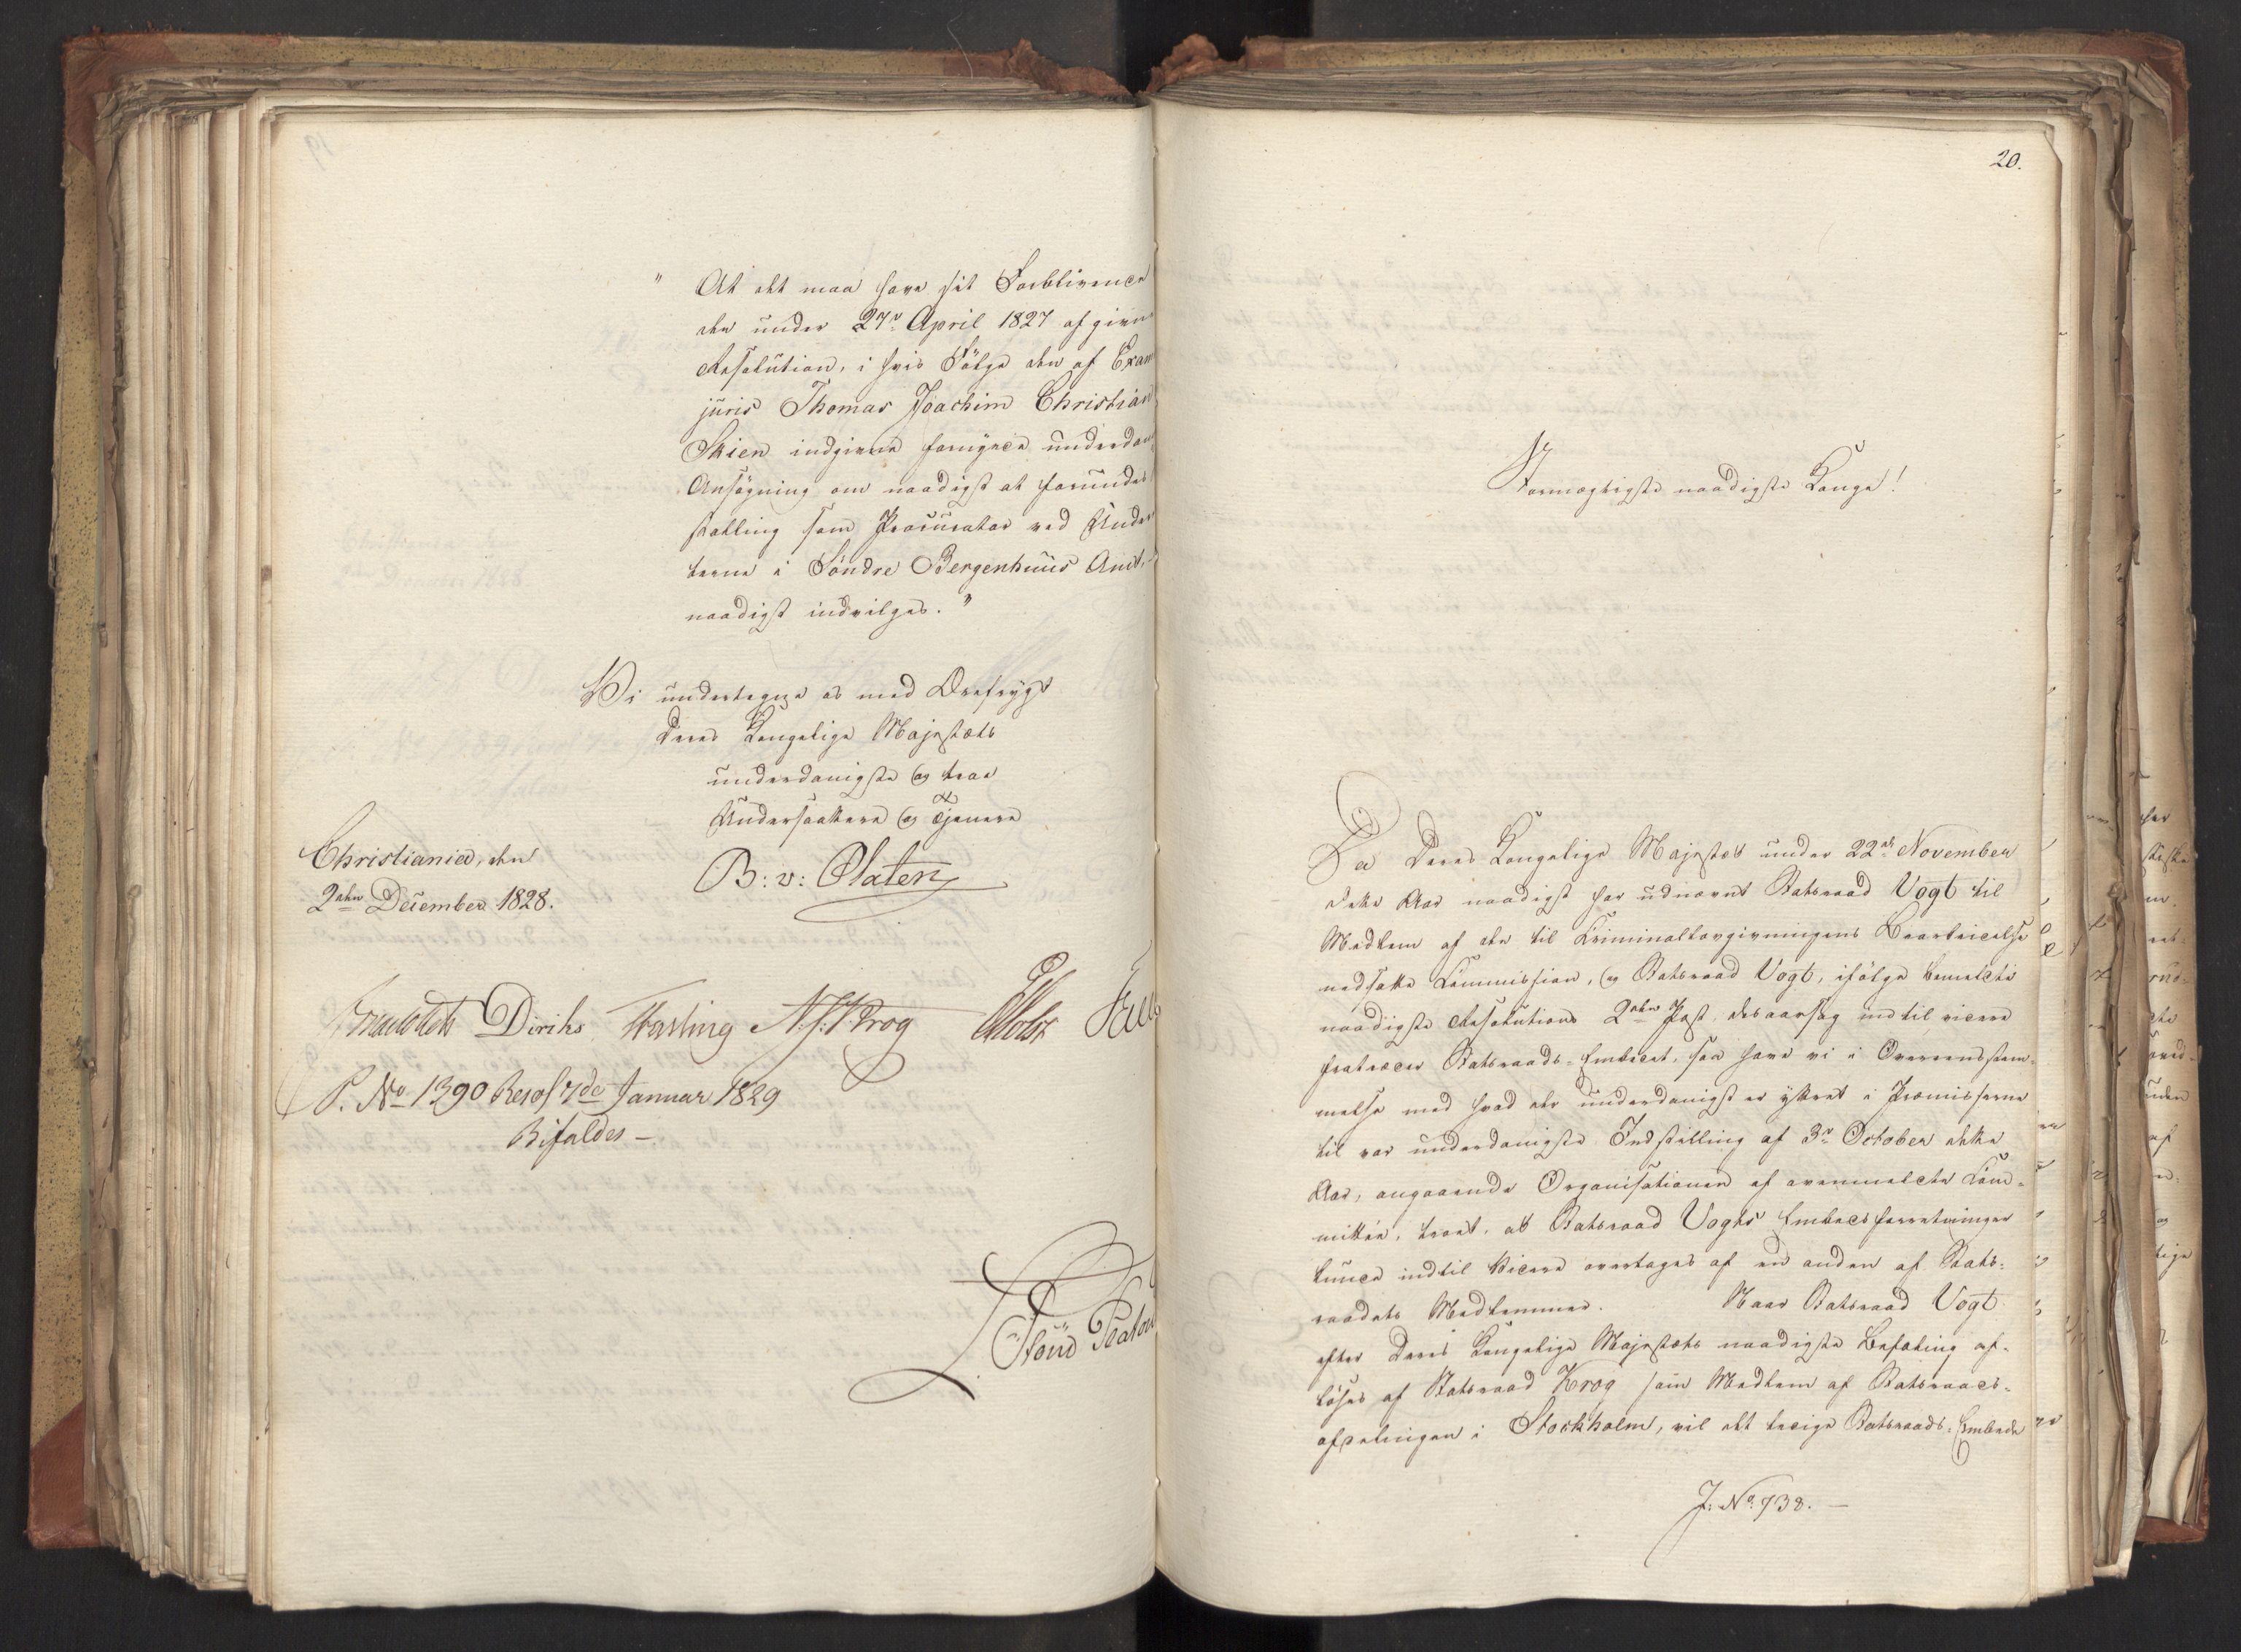 " At det maa have sit Forblivende
den under 27de April 1827 afgivne
Resolution, i hvis Følge den af Exam
juris Thomas Joachim Christian
Skien indgivne fornyede underdan
Ansøgning om naadigst at forundes
stalling som Procurator ved Under
terne i Söndre Bergenhuus Amt,
naadigst indvilges. "
Vi undertegne os med Ærefrygt
Deres Kongelige Majestæts
underdanigste og troe
Undersaattere og Tjenere
Christiania, den
2den December 1828.
B: v: Platen
Diriks Fasting N. J. Krog Holst
P. No 1390 Resol 7de Januar 1829
Bifaldes –
20.
Stormægtigste naadigste Konge!
Da Deres Kongelige Majestæt under 22de November
dette Aar naadigst har udnævnt Statsraad Vogt til
Medlem af den til Kriminallovgivningens Bearbeidelse
nedsatte Commission, og Statsraad Vogt, ifølge bemeldte
naadigste Resolutions 2den Post, desaarsag indtil videre
fratræder Statsraads-Embedet, saa have vi i Overeensstem-
melse med hvad der underdanigst er yttret i Præmisserne
til vor underdanigste Indstilling af 3de October dette
Aar, angaaende Organisationen af ovenmeldte Com-
mittée, troet, at Statsraad Vogts Embedsforretninger
kunde indtil Videre overtages af en anden af Stats-
raadets Medlemmer. Naar Statsraad Vogt
efter Deres Kongelige Majestæts naadigste Befaling af-
løses af Statsraad Krog som Medlem af Statsraads-
afdelingen i Stockholm, vil det ledige Statsraads-Embede
J: No 738. –